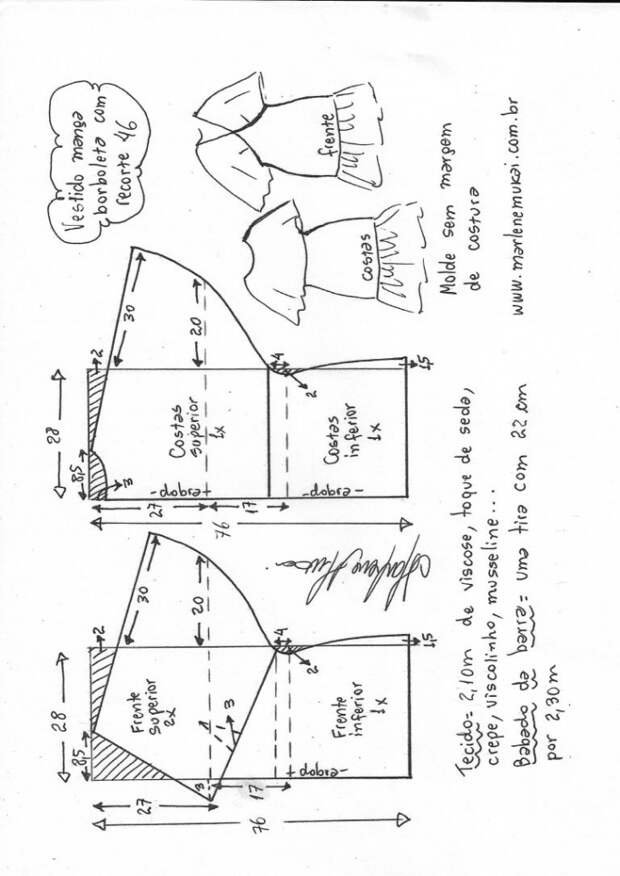 Vestido manga
borboleta com
recorte 46
frente
costas
Molde sem margem
de costura
www.marlenemukai.com.br
28
8,5
3
2
30
20
Costas
superior
1x
-dobra+
27
17
76
4
2
Costas
inferior
1x
-dobra-
1,5
28
8,5
2
30
20
Frente
superior
2x
3
3
27
17
76
4
2
Frente
inferior
1x
-dobra+
1,5
Tecido= 2,10m de viscose, toque de seda,
crepe, viscolinho, musseline...
Babado da barra= uma tira com 22 cm
por 2,30m